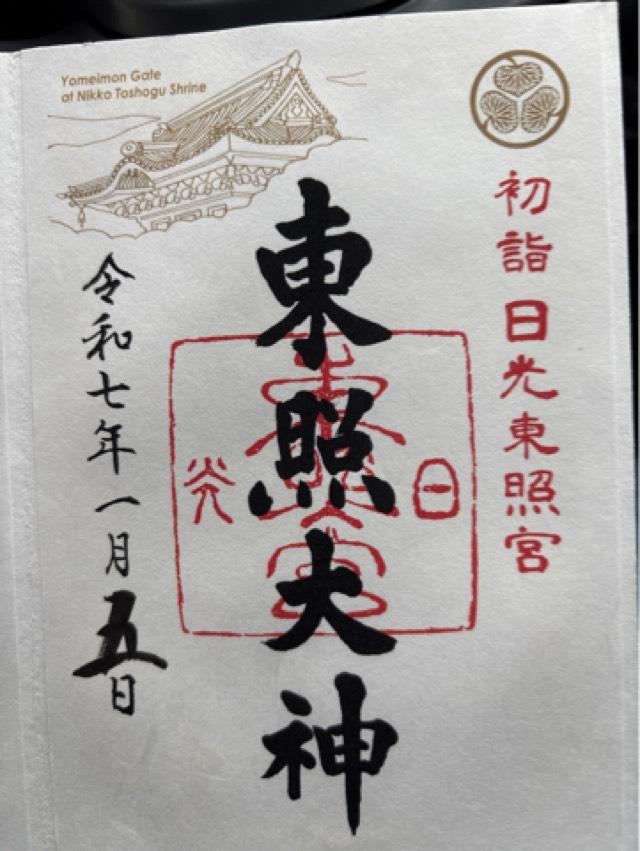 Yomeimon Gate
at Nikko Toshogu Shrine
初詣 日光東照宮
東照大神
日光
令和七年一月五日